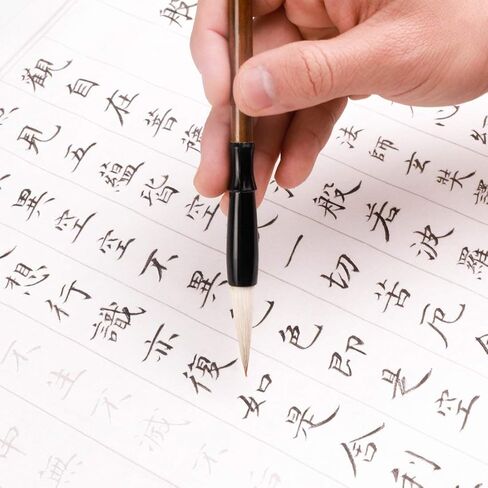 般心
法師玄奘
觀自在菩般若波羅
見五蘊皆空一切苦厄
異空空不異色即是空
想行識亦復如是舍利
不生不滅
中無